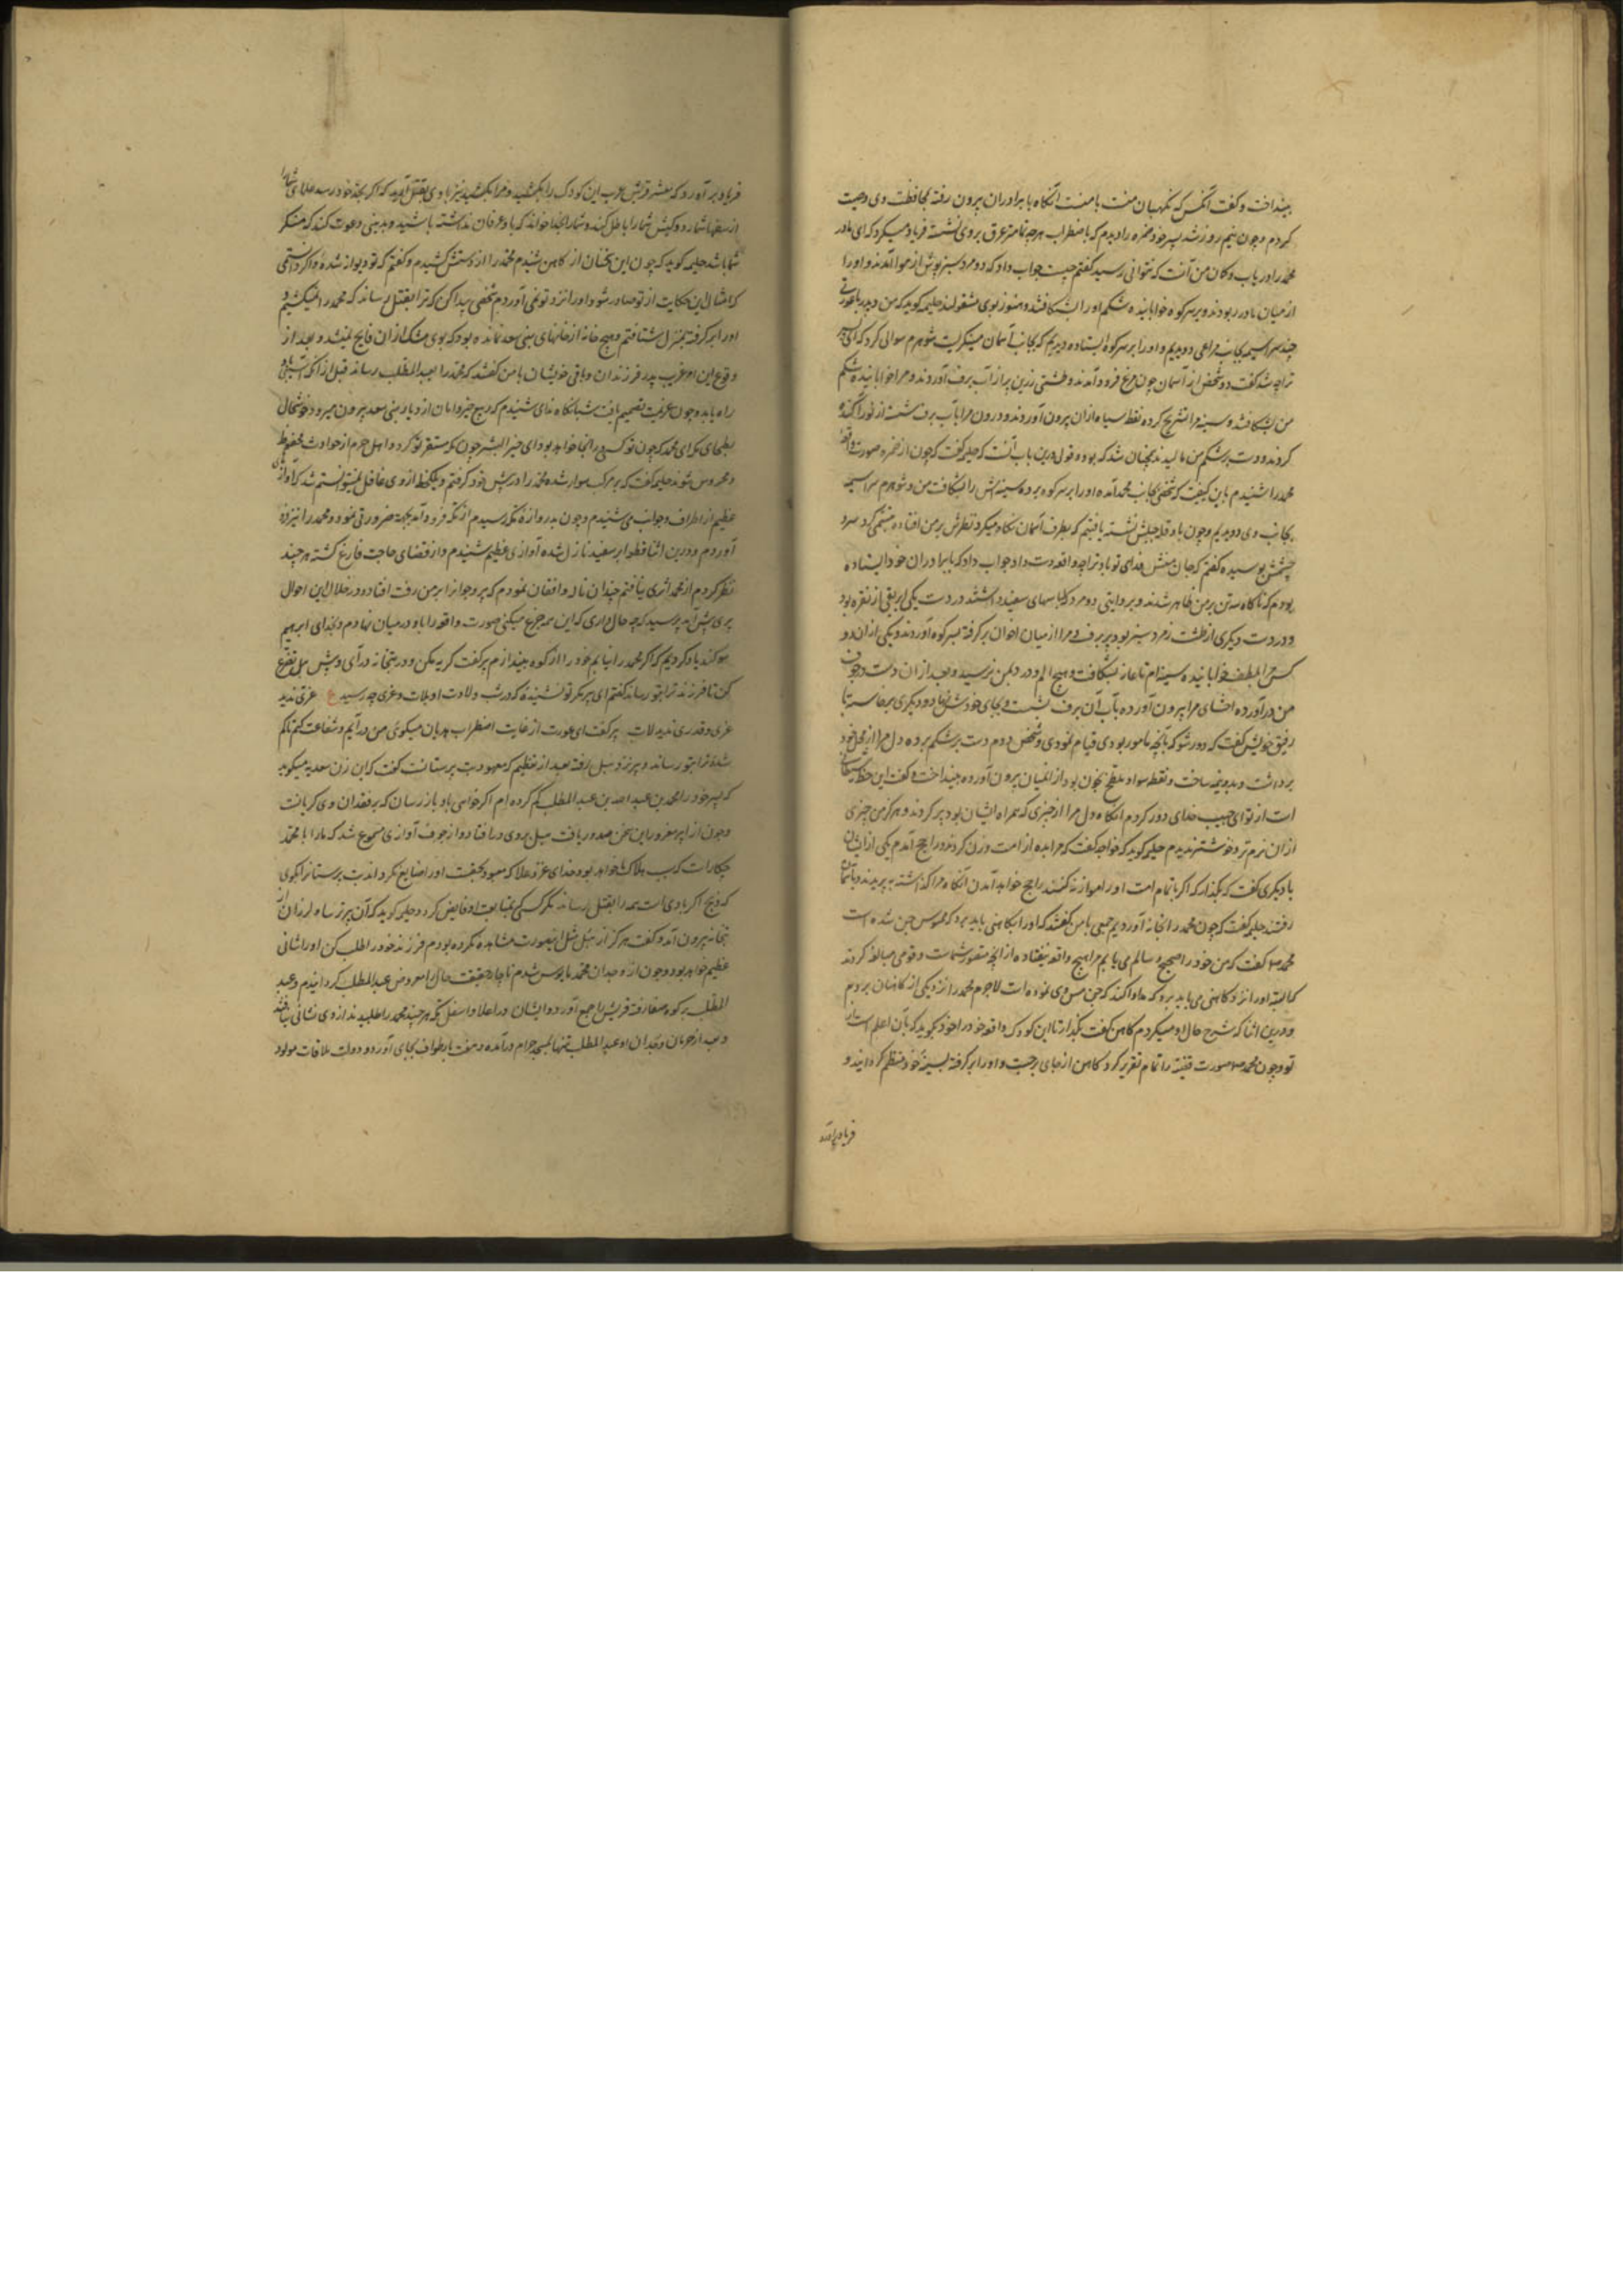 بینداخت و گفت آنکس که نگهبان منت با منست آنگاه با برادران بیرون رفته بمحافظت وی وصیت
کردم و چون نیم روز شد پسر خود ضمره را دیدم که باضطراب هرچه تمامتر عرق بر وی نشسته فریاد میکرد که ای مادر
محمد را دریاب و گمان من آنست که نتوانی رسید گفتم چیست جواب داد که دو مرد سبزپوش از هوا آمدند و او را
از میان ما در ربودند و بر سر کوه خوابانیده شکم او را بشکافتند و هنوز بوی مشغولند حلیمه گوید که من و پدر
سراسیمه بجانب مراعی دویدیم و او را بر سر کوه ایستاده دیدیم که بجانب آسمان مینگریست شوهرم سوالی کرد که ای پسر
ترا چه شد گفت دو شخص از آسمان چون مرغ فرود آمدند و طشتی زرین پر از آب برف آوردند و مرا خوابانیده شکم
من بشکافتند و سینه مرا تشریح کرده نقطه سیاه ازان بیرون آوردند و درون مرا بآب برف شسته از نور آکنده
کردند و دست بر شکم من مالیدند همچنان شد که بود و قول درین باب آنست که حلیمه گفت که چون از ضمره صورت واقعه
محمد را شنیدم باین کیفیت که شخصی بجانب محمد آمده او را بر سر کوه برده سینه‌اش را بشکافت من و شوهرم سراسیمه
بجانب وی دویدیم و چون باو نشسته یافتیم که بطرف آسمان نگاه میکرد نظرش بر من افتاده متبسم گردید سر و
چشمش بوسیده گفتم که جان فدای تو باد ترا چه واقعه دست داد جواب داد که با برادران خود ایستاده
بودم که ناگاه سه تن بر من ظاهر شدند و بروایتی دو مرد که لباسهای سفید داشتند در دست یکی ابریقی از نقره بود
و در دست دیگری طشت زمرد سبز بود پر برف مرا از میان اخوان بر گرفته بسر کوه آوردند و یکی ازان دو
کس مرا بلطف خوابانیده سینه‌ام تا عانه بشکافت و هیچ الم و درد بمن نرسید و بعد ازان دست در جوف
من در آورده احشای مرا بیرون آورده بآب آن برف بشست و بجای خودش نهاد و دیگری برخاسته با
رفیق خویش گفت که دور شو که بآنچه مامور بودی قیام نمودی و شخص دوم دست بر شکم برده دل مرا از محل خود
برداشت و بدو نیمه ساخت و نقطه سواد ملطخ بخون بود از میان بیرون آورده بینداخت و گفت این حظ شیطان
است از تو ای حبیب خدای دور کردم آنگاه دل مرا از چیزی که همراه ایشان بود پر کردند و هرگز من چیزی
ازان نرم‌تر و خوشتر ندیدم حلیمه گوید که خواجه گفت که مرا به ده از امت وزن کردند و راجح آمدم یکی از ایشان
با دیگری گفت که بگذار که اگر با تمام امت او را موازنه کنند راجح خواهد آمدن آنگاه مرا گذاشته بپریدند و بآسمان
رفتند حلیمه گفت که چون محمد را بخانه آوردیم جمعی با من گفتند که او را بکاهنی باید برد که ممسوس جن شده است
محمد گفت که من خود را صحیح و سالم می‌یابم مرا هیچ واقعه نیفتاده از آنچه متصور شماست و قومی مبالغه کردند
که البته او را نزد کاهنی می‌باید برد که مداوا کند که جن مس وی نموده است لاجرم محمد را نزد یکی از کاهنان بردیم
و درین اثنا که شرح حال او میکردم کاهن گفت بگذار تا این کودک واقعه خود را خود بگوید که بآن اعلم است از
تو و چون محمد صورت قضیه را تمام تقریر کرد کاهن از جای برجست و او را بر گرفته بسینه خود منظم گردانید و
فریاد برآورد
فریاد برآورد که معشر قریش عرب این کودک را بکشید و مرا نیز با وی بقتل آرید که اگر بحد خود رسد علمای شما را
از شما رد و کیش شما را باطل کند و شما را بخدا خواند که باو عرفان نداشته باشید و بدینی دعوت کند که منکر
شما باشد حلیمه گوید که چون این سخنان از کاهن شنیدم محمد را از دستش کشیدم و گفتم که تو دیوانه شده و اگر دانستمی
که امثال این حکایت از تو صادر شود او را نزد تو نمی آوردم شخصی پیدا کن که ترا بقتل رساند که محمد را نمیکشیم و
او را بر گرفته بمنزل شتافتم و هیچ خانه از خانهای بنی سعد نمانده بود که بوی مشک ازان فایح نمیشد و بعد از
وقوع این امر غریب پدر فرزندان و باقی خویشان با من گفتند که محمد را بعبد المطلب رساند قبل از آنکه
راه یابد و چون عزیمت تصمیم یافت شبانگاه ندای شنیدم که ربیع خیر و امان از دیار بنی سعد بیرون میرود و خوشحال
بطحای مکه ای محمد که چون تو کسی در آنجا خواهد بود ای خیر البشر چون مکه مستقر تو گردد اهل حرم از حوادث محفوظ
و محروس شوند حلیمه گفت که بر مرکب سوار شده محمد را در پیش خود گرفتم و یکلحظه از وی غافل نمیتوانستم شد که آوازی
عظیم از اطراف و جوانب می‌شنیدم و چون بدروازه مکه رسیدم از مرکب فرود آمدم بجهت ضرورتی نمود و محمد را نیز فرود
آوردم و درین اثنا قطعه ابر سفید نازل شده آوازی عظیم شنیدم و از قضای حاجت فارغ گشته هر چند
نظر کردم از محمد اثری نیافتم چندان ناله و افغان نمودم که پیر و جوانرا بر من رقت افتاد و در خلال این احوال
پیری پیش آمد پرسید که چه حال داری که این همه جزع میکنی صورت واقعه را باو در میان نهادم و بخدای ابراهیم
سوگند یاد کردم که اگر محمد را نیابم خود را از کوه بیندازم پیر گفت گریه مکن و در بتخانه درآی و پیش هبل تضرع
کن تا فرزند ترا بتو رساند گفتم ای پیر مگر تو نشنیده که در شب ولادت او بلات و عزی چه رسید ع عزتی ندید
عزی و قدری ندید لات پیر گفت ای عورت از غایت اضطراب هذیان میگوئی من درآیم و شفاعت کنم تا گم
شده ترا بتو رساند و پیر نزد هبل رفته بعد از تعظیم که معهود بت پرستانست گفت که این زن سعدیه میگوید
که پسر خود را محمد بن عبد الله بن عبد المطلب گم کرده‌ام اگر خواهی باو باز رسان که بر فقدان وی گریانست
و چون از پیر مغرور این سخن صدور یافت هبل بروی در افتاد و از جوف آوازی مسموع شد که ما را با محمد
چکارست که سبب هلاک ما خواهد بود و خدای عز و علا که معبود حقیقت او را ضایع نگذارد بت پرستانرا بگوی
که ذبح اکبر با وی است همه را بقتل رساند مگر کسی که بمتابعت او فایض گردد حلیمه گوید که آن پیر ترسان و لرزان از
بتخانه بیرون آمد و گفت هرگز از هبل مثل اینصورت مشاهده نکرده بودم فرزند خود را طلب کن او را شانی
عظیم خواهد بود و چون از وجدان محمد مایوس شدم ناچار حقیقت حال را معروض عبد المطلب گردانیدم و عبد
المطلب بر کوه صفا رفته قریش را جمع آورد و ایشان در اعلا و اسفل مکه هر چند محمد را طلبیدند از وی نشانی نیافتند
و بعد از حرمان وجدان او عبد المطلب تنها بمسجد حرام درآمده و هفت بار طواف بجای آورد و دولت ملاقات مولود